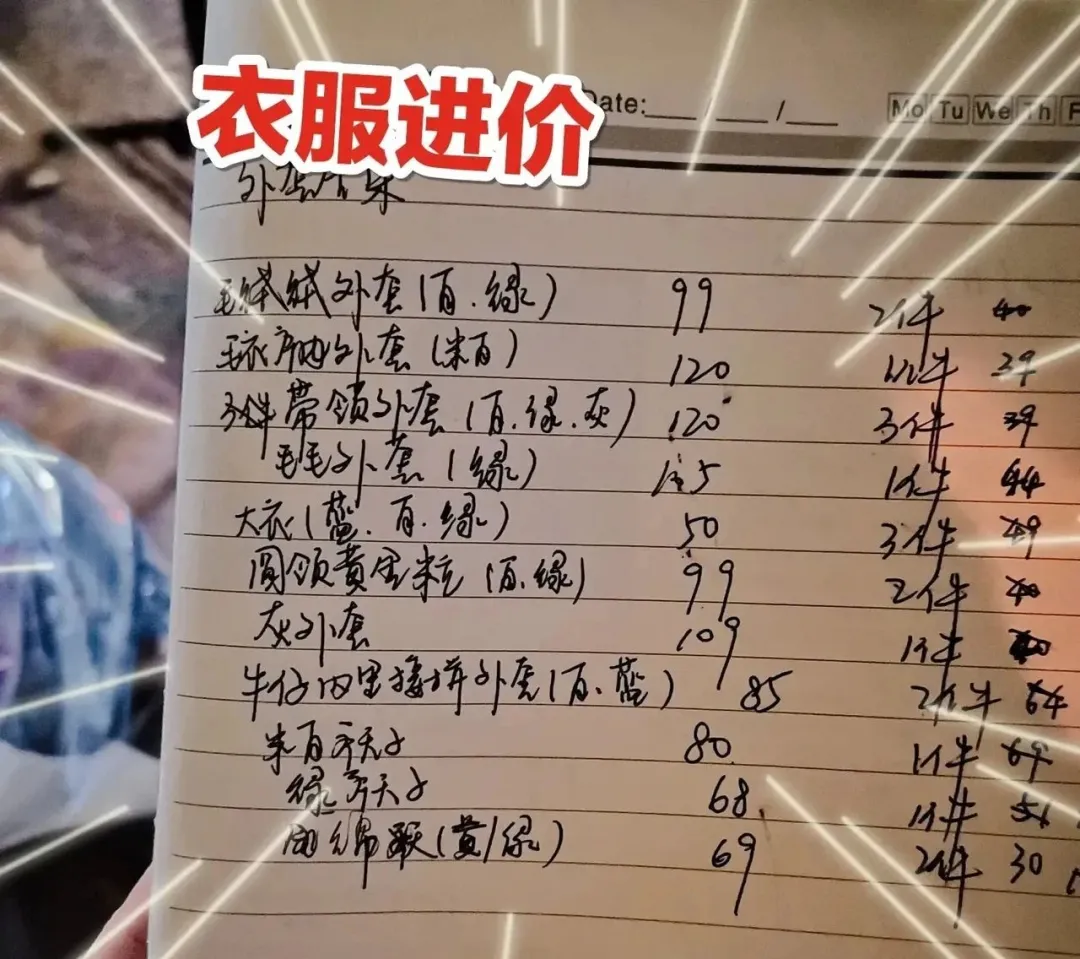 衣服进价
Date: / /
Mo Tu We Th F
外套
毛绒绒外套(白.绿) 99 2件 40
毛衣 外套(米白) 120 1件 39
3件带领外套(白.绿.灰) 120 3件 39
毛毛外套(绿) 1件 44
大衣(蓝.白.绿) 50 3件 49
圆领黄 (白.绿) 99 2件
灰外套 109 1件
牛仔内里接拼外套(白.蓝) 85 2件 64
米白 80 1件 69
绿 68 1件
(黄/绿) 69 2件 30